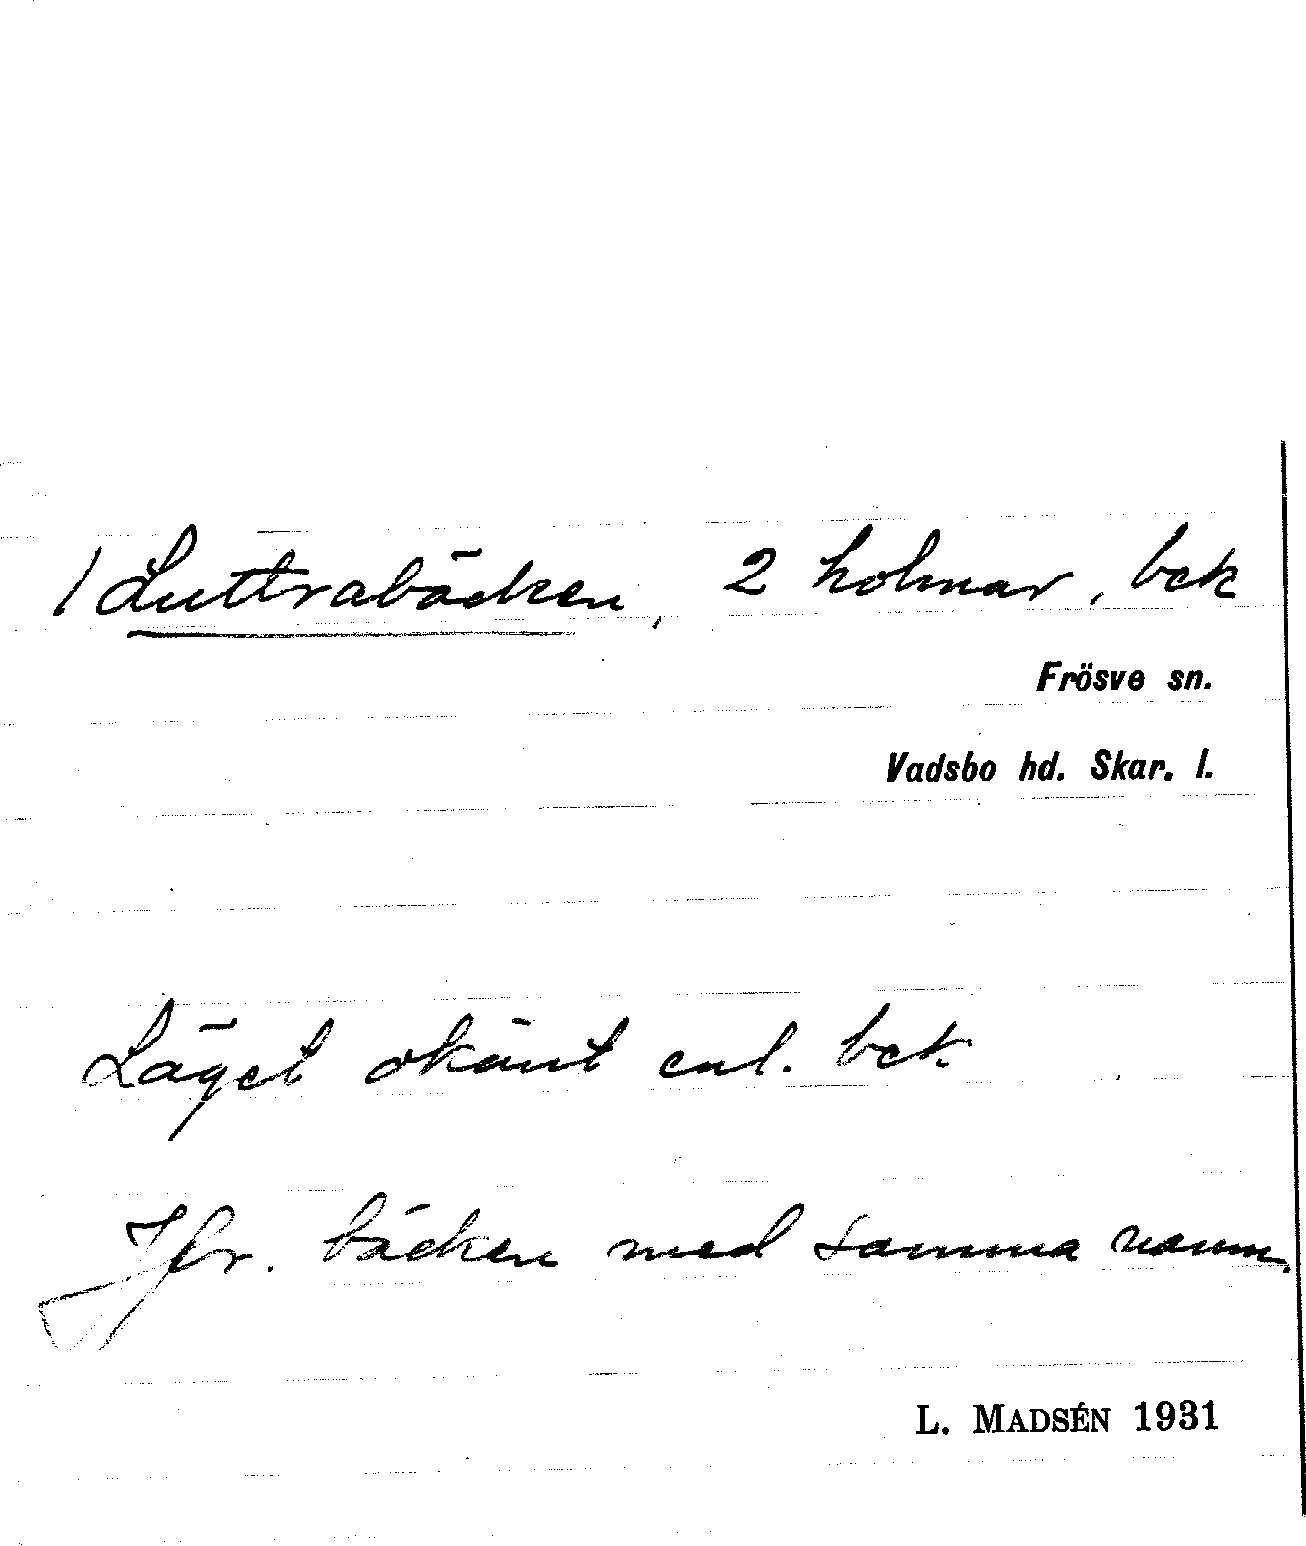 / Luttrabäcken, 2 holmar, bek
Frösve sn.
Vadsbo hd. Skar. l.
Läget okänt enl. bek
Jfr. bäcken med samma namn.
L. MADSÉN 1931